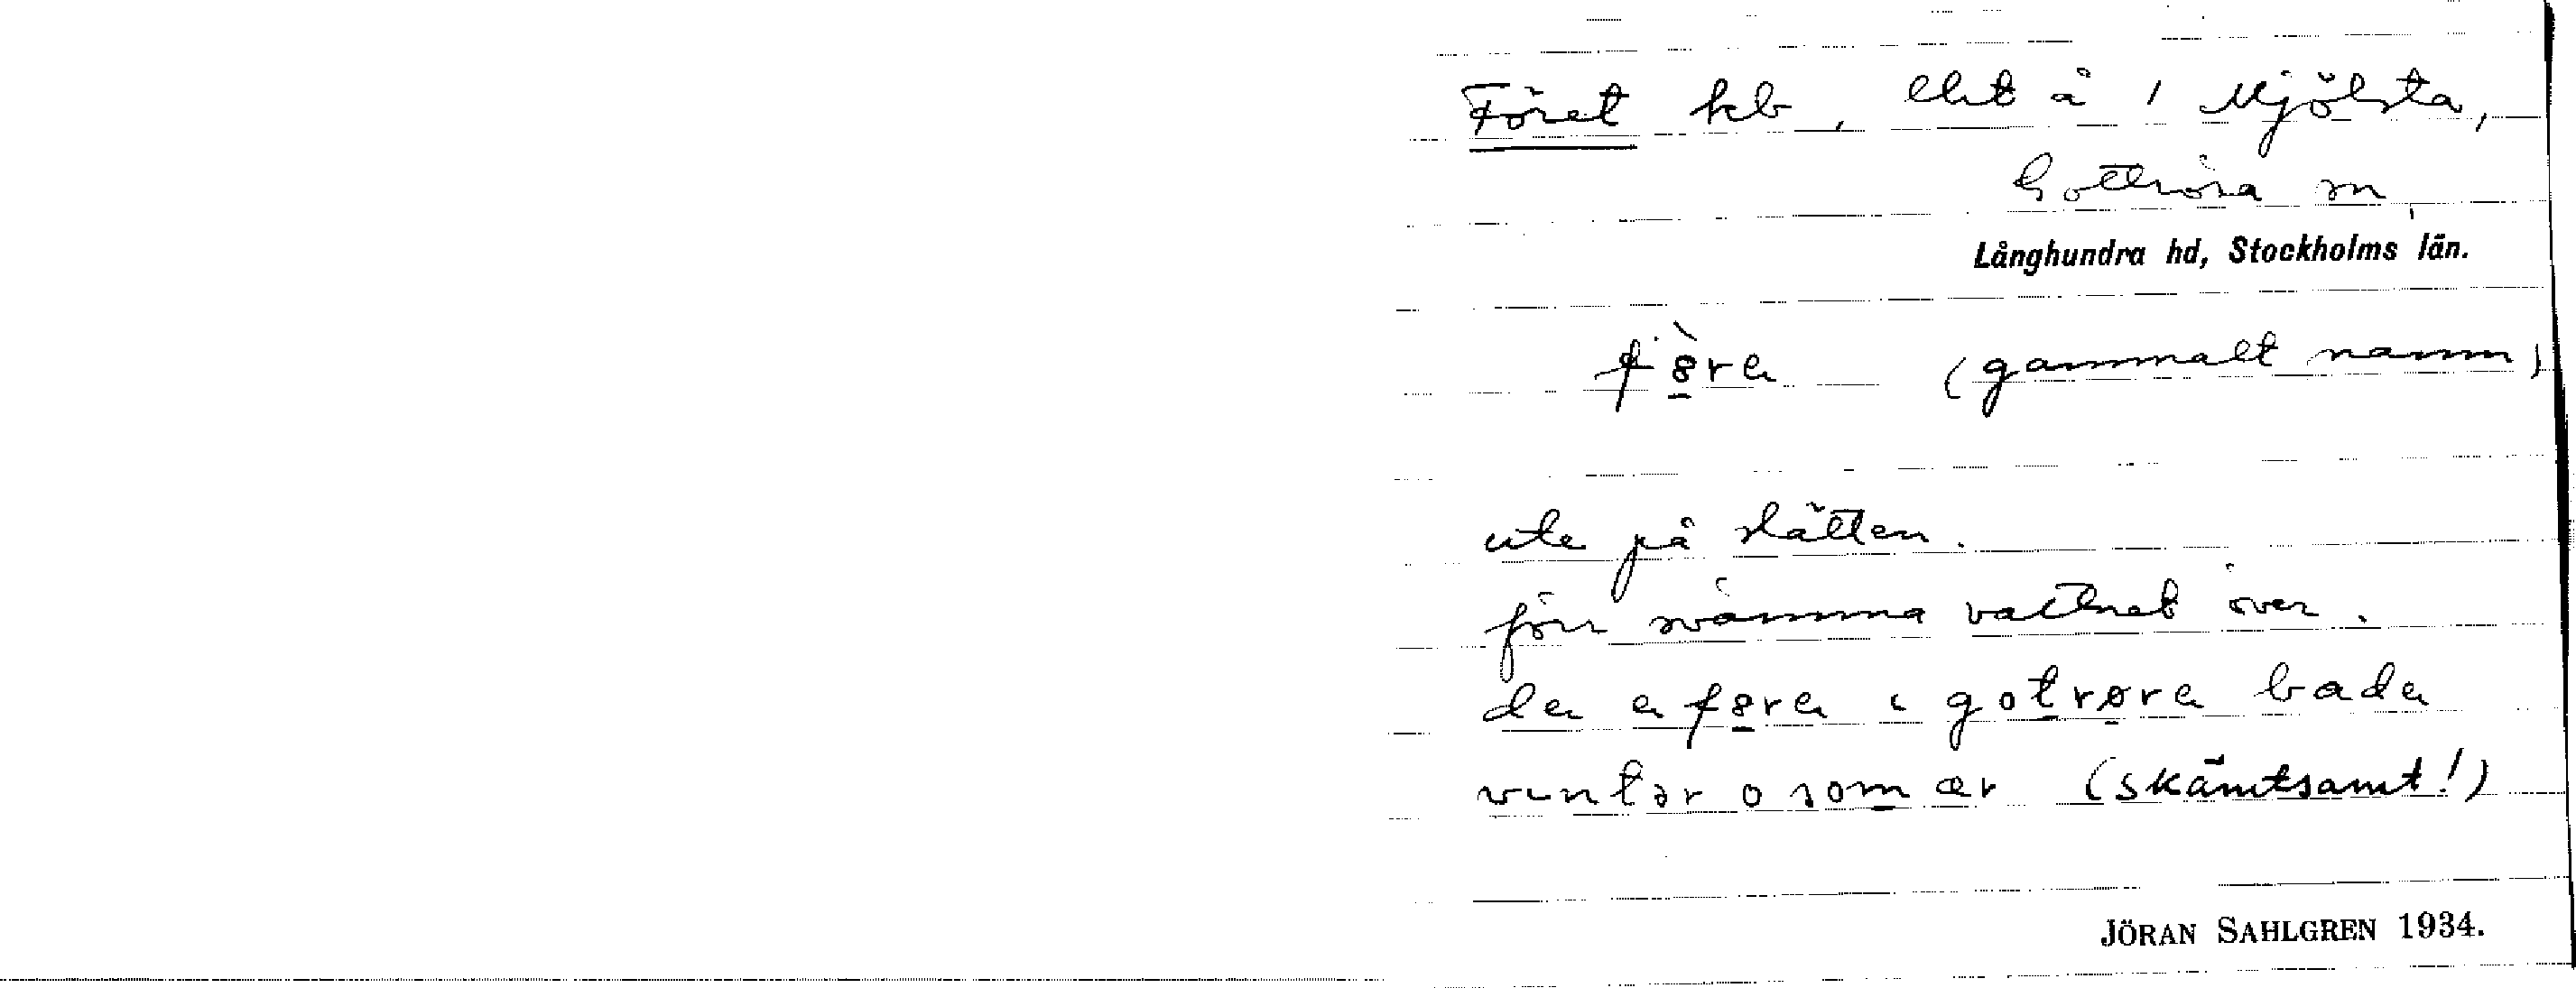 Föret kb, ekt å i Mjölsta,
Gottröra sn,
Långhundra hd, Stockholms län.
(gammalt namn)
ute på slätten.
förr svämma vattnet över.
de e i gotrøra bada
vintər o somær (skämtsamt!)
JÖRAN SAHLGREN 1934.